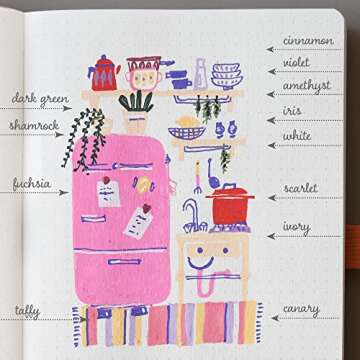 cinnamon
violet
amethyst
dark green
iris
shamrock
white
fuchsia
scarlet
ivory
taffy
canary